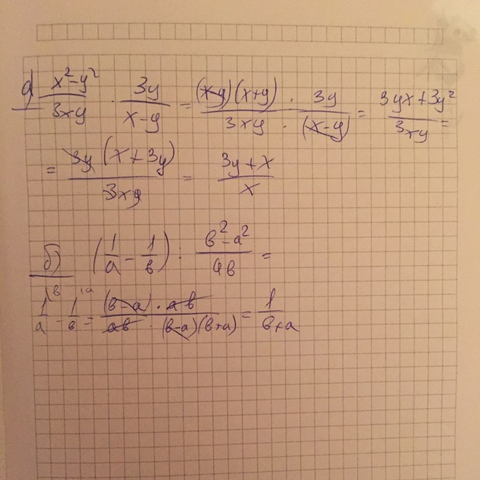 а) x²-y²/3xy · 3y/x-y = (x-y)(x+y) · 3y/3xy · (x-y) = 3yx+3y²/3xy =
= 3y(x+3y)/3xy = 3y+x/x
б) (1/a - 1/в) : в²-a²/aв =
1/a ᵇ - 1/в ᵃ = (в-a) · aв/aв · (в-a)(в+a) = 1/в+a